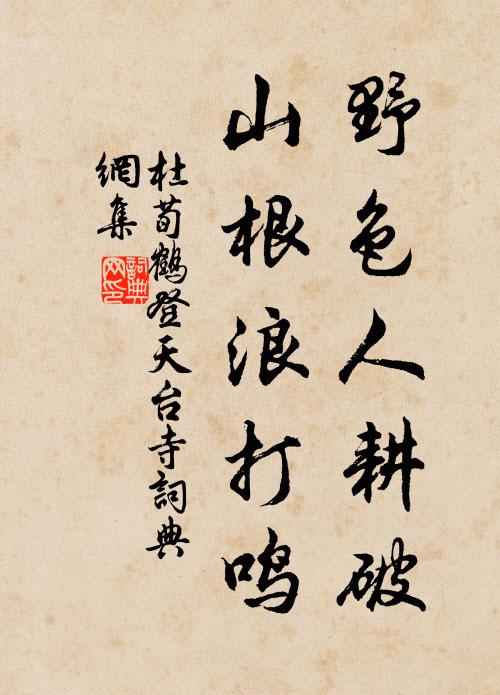 野色人耕破
山根浪打鸣
杜荀鶴登天台寺詞典
網集
詞典
网印